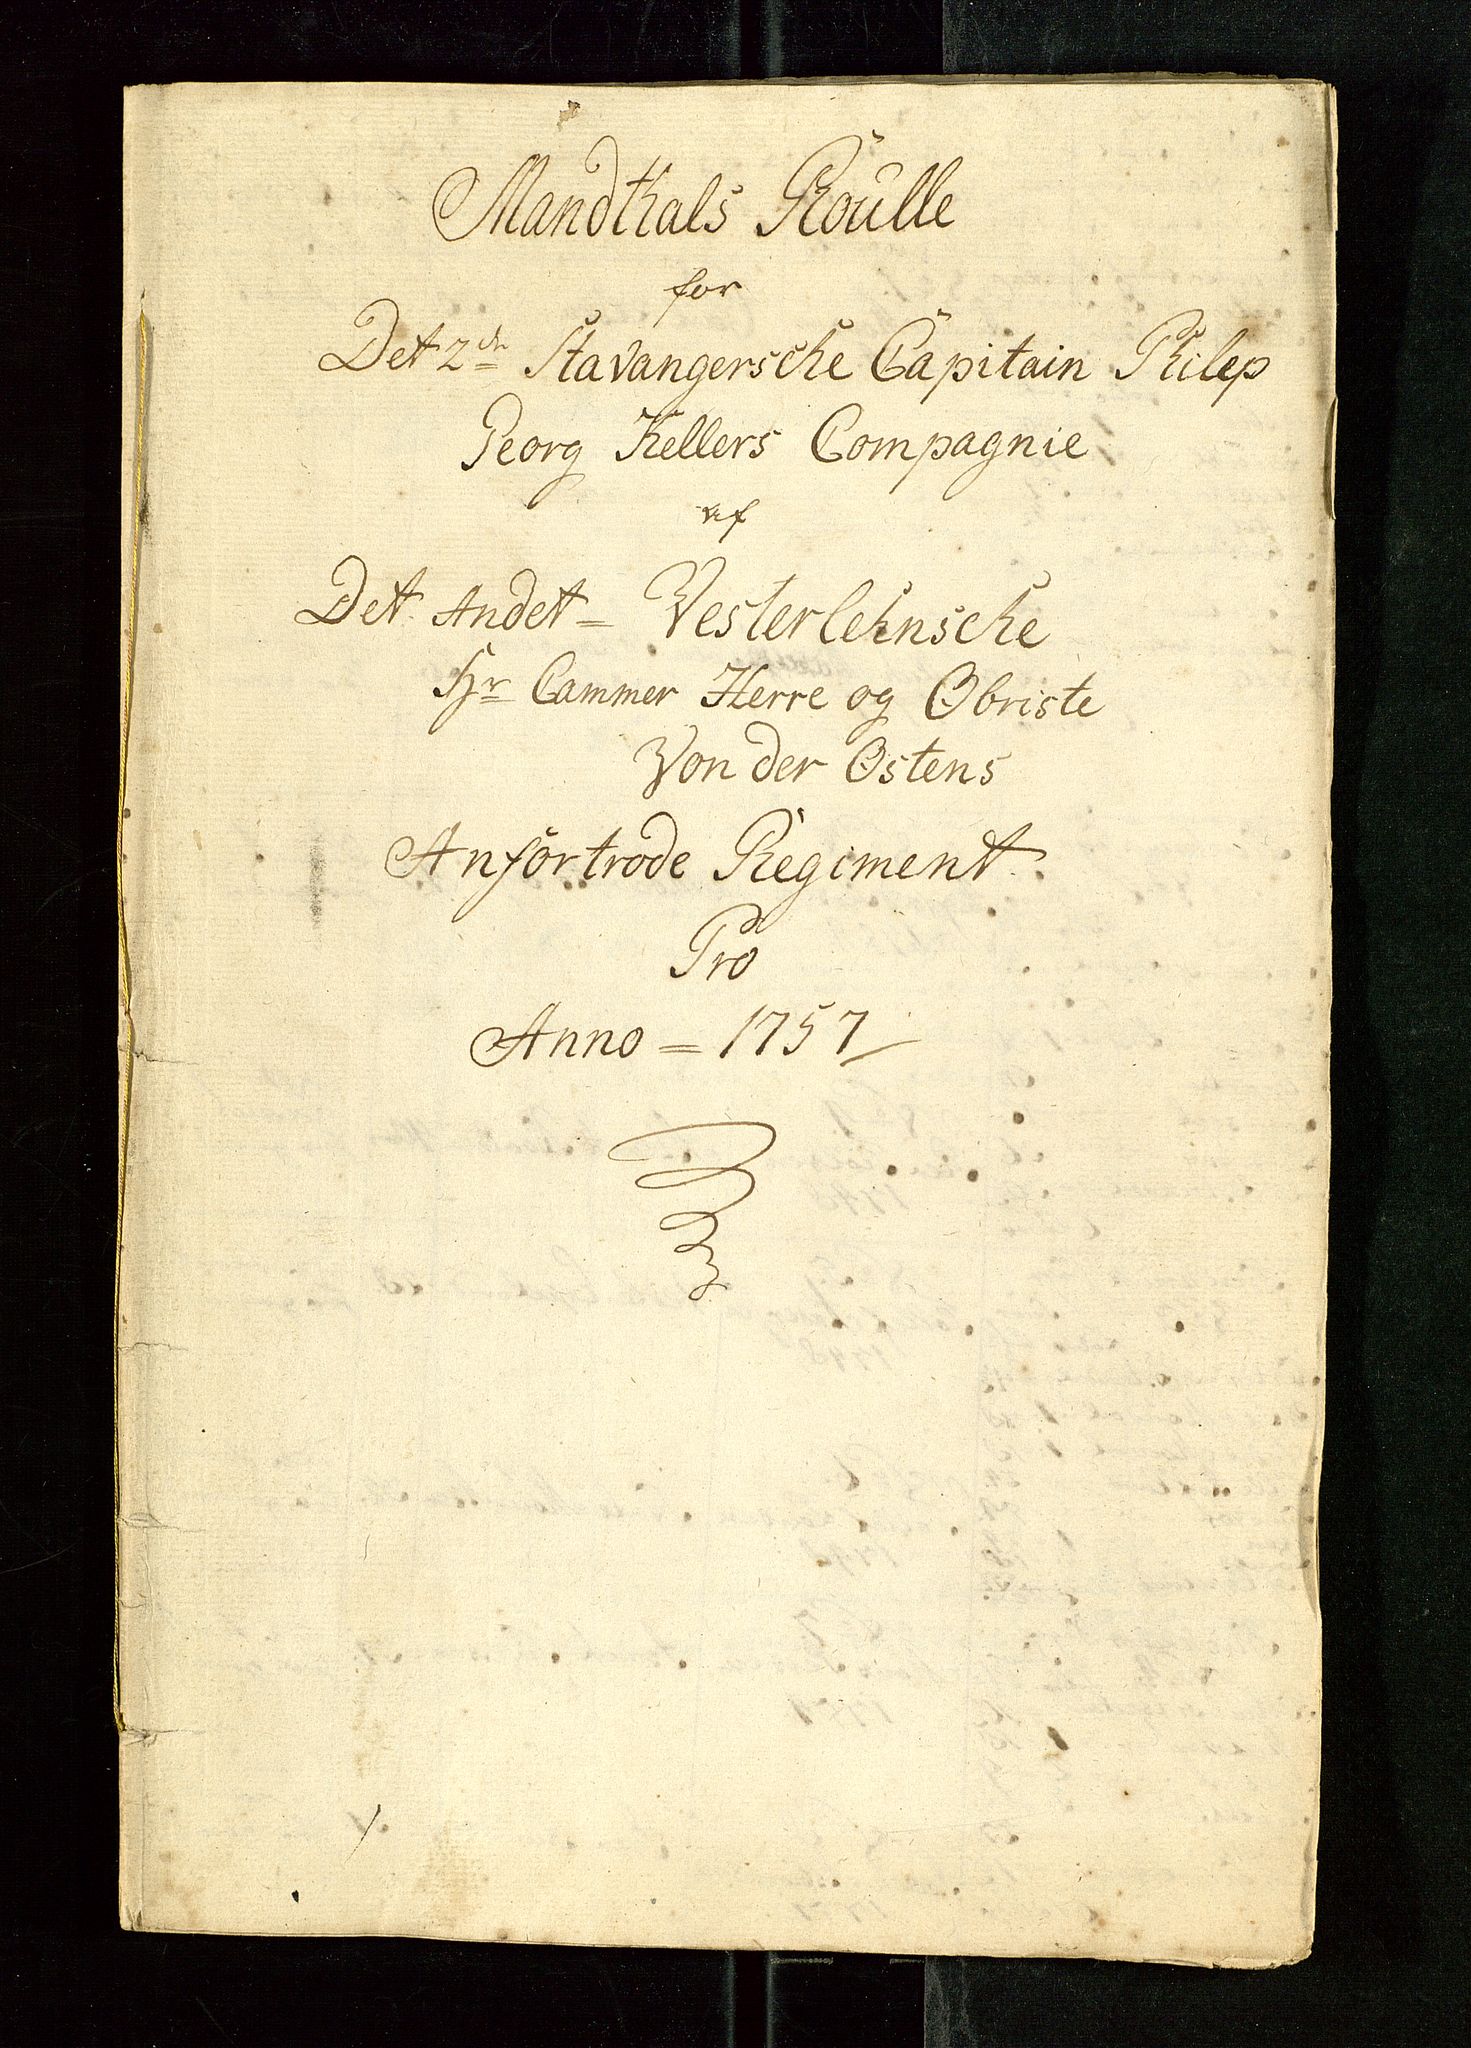 Mandthals Roulle
for
Det 2de Stavangersche Capitain Philep
Georg Kellers Compagnie
af
Det Andet = Vesterlehnsche
Hr Cammer Herre og Obriste
Von der Ostens
Anfortrode Regiment
Pro
Anno = 1757